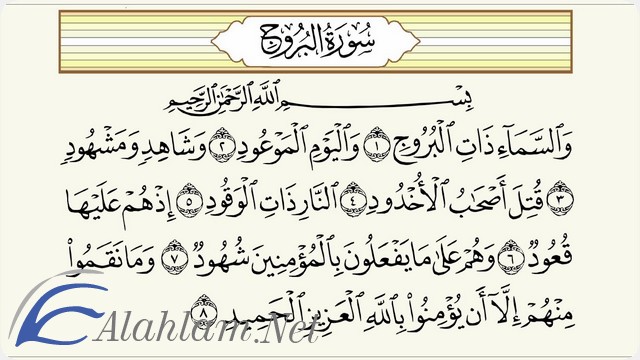 سُورَةُ البُرُوجِ
بِسْمِ ٱللَّهِ ٱلرَّحْمَٰنِ ٱلرَّحِيمِ
وَٱلسَّمَآءِ ذَاتِ ٱلْبُرُوجِ ١ وَٱلْيَوْمِ ٱلْمَوْعُودِ ٢ وَشَاهِدٍ وَمَشْهُودٍ
٣ قُتِلَ أَصْحَٰبُ ٱلْأُخْدُودِ ٤ ٱلنَّارِ ذَاتِ ٱلْوَقُودِ ٥ إِذْ هُمْ عَلَيْهَا
قُعُودٌ ٦ وَهُمْ عَلَىٰ مَا يَفْعَلُونَ بِٱلْمُؤْمِنِينَ شُهُودٌ ٧ وَمَا نَقَمُوا۟
مِنْهُمْ إِلَّآ أَن يُؤْمِنُوا۟ بِٱللَّهِ ٱلْعَزِيزِ ٱلْحَمِيدِ ٨
Alahlam.Net